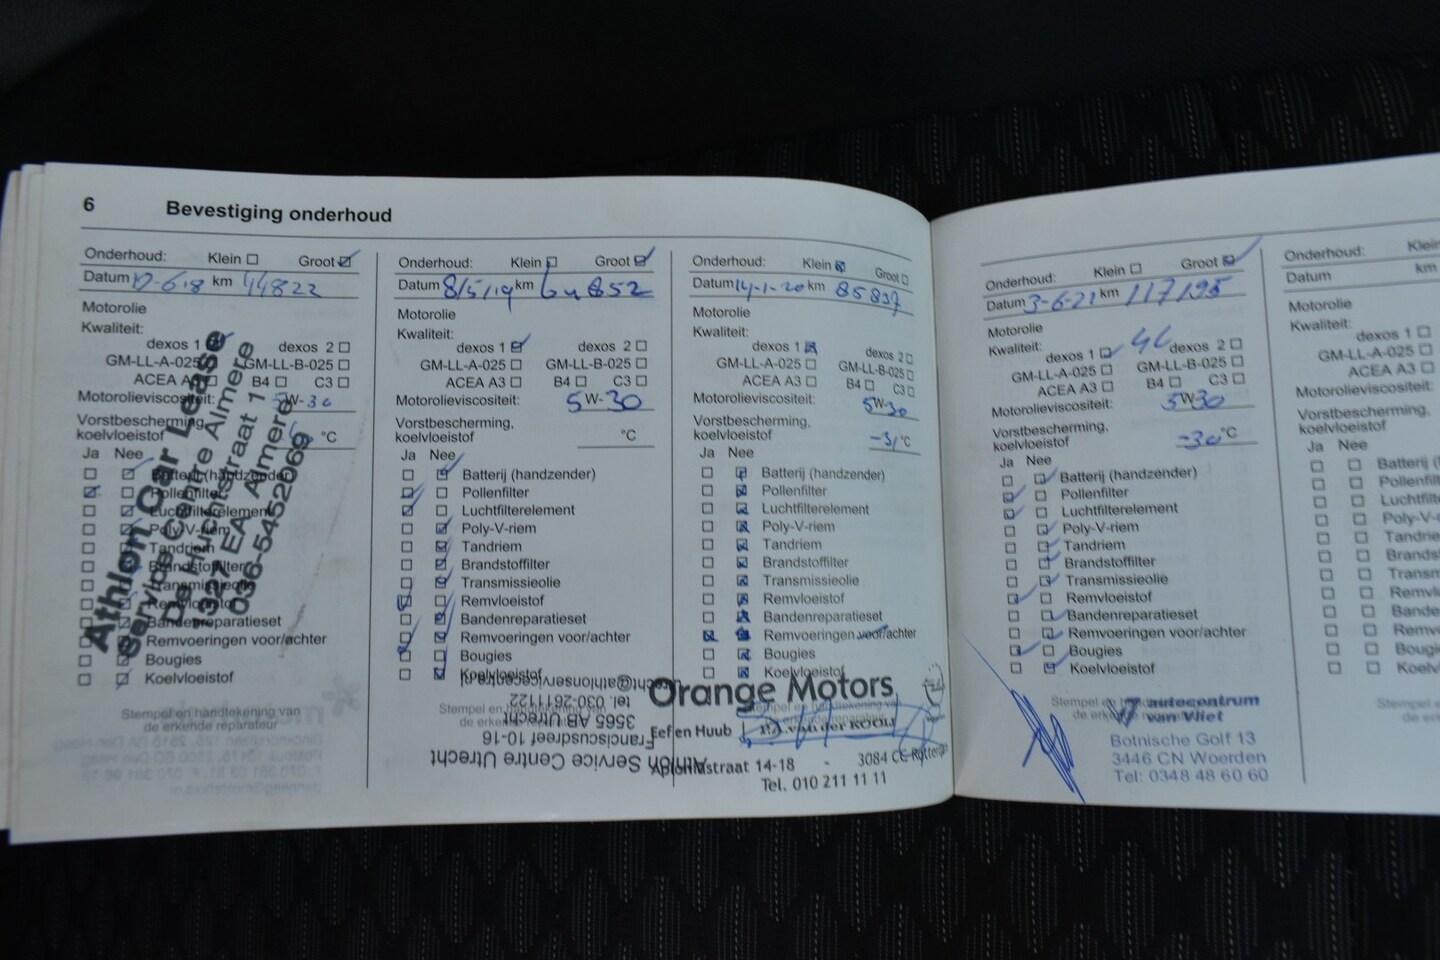 6 Bevestiging onderhoud
Onderhoud: Klein Groot
Datum km 44822
Motorolie
Kwaliteit:
dexos 1 dexos 2
GM-LL-A-025 GM-LL-B-025
ACEA A3 B4 C3
Motorolieviscositeit: 5W-30
Vorstbescherming,
koelvloeistof °C
Ja Nee
Batterij (handzender)
Pollenfilter
Luchtfilterelement
Poly-V-riem
Tandriem
Brandstoffilter
Transmissieolie
Remvloeistof
Bandenreparatieset
Remvoeringen voor/achter
Bougies
Koelvloeistof
Stempel en handtekening van
de erkende reparateur
Athlon Car Lease
Service Centre Almere
De Huchtstraat 1
1327 EA Almere
036-5452069
Onderhoud: Klein Groot
Datum 8/5/19 km 64852
Motorolie
Kwaliteit:
dexos 1 dexos 2
GM-LL-A-025 GM-LL-B-025
ACEA A3 B4 C3
Motorolieviscositeit: 5W-30
Vorstbescherming,
koelvloeistof °C
Ja Nee
Batterij (handzender)
Pollenfilter
Luchtfilterelement
Poly-V-riem
Tandriem
Brandstoffilter
Transmissieolie
Remvloeistof
Bandenreparatieset
Remvoeringen voor/achter
Bougies
Koelvloeistof
Athlon Service Centre Utrecht
Franciscusdreef 10-16
3565 AB Utrecht
tel. 030-2611122
Onderhoud: Klein Groot
Datum 14-1-20 km 85837
Motorolie
Kwaliteit:
dexos 1 dexos 2
GM-LL-A-025 GM-LL-B-025
ACEA A3 B4 C3
Motorolieviscositeit: 5W-30
Vorstbescherming,
koelvloeistof -31 °C
Ja Nee
Batterij (handzender)
Pollenfilter
Luchtfilterelement
Poly-V-riem
Tandriem
Brandstoffilter
Transmissieolie
Remvloeistof
Bandenreparatieset
Remvoeringen voor/achter
Bougies
Koelvloeistof
Orange Motors
Eef en Huub
straat 14-18 - 3084 CE
Tel. 010 211 11 11
Onderhoud: Klein Groot
Datum 3-6-21 km 117195
Motorolie
Kwaliteit: 4L
dexos 1 dexos 2
GM-LL-A-025 GM-LL-B-025
ACEA A3 B4 C3
Motorolieviscositeit: 5W30
Vorstbescherming,
koelvloeistof -30 °C
Ja Nee
Batterij (handzender)
Pollenfilter
Luchtfilterelement
Poly-V-riem
Tandriem
Brandstoffilter
Transmissieolie
Remvloeistof
Bandenreparatieset
Remvoeringen voor/achter
Bougies
Koelvloeistof
autocentrum
van Vliet
Botnische Golf 13
3446 CN Woerden
Tel: 0348 48 60 60
Onderhoud: Klein
Datum km
Motorolie
Kwaliteit:
dexos 1
GM-LL-A-025
ACEA A3
Motorolieviscositeit:
Vorstbescherming,
koelvloeistof
Ja Nee